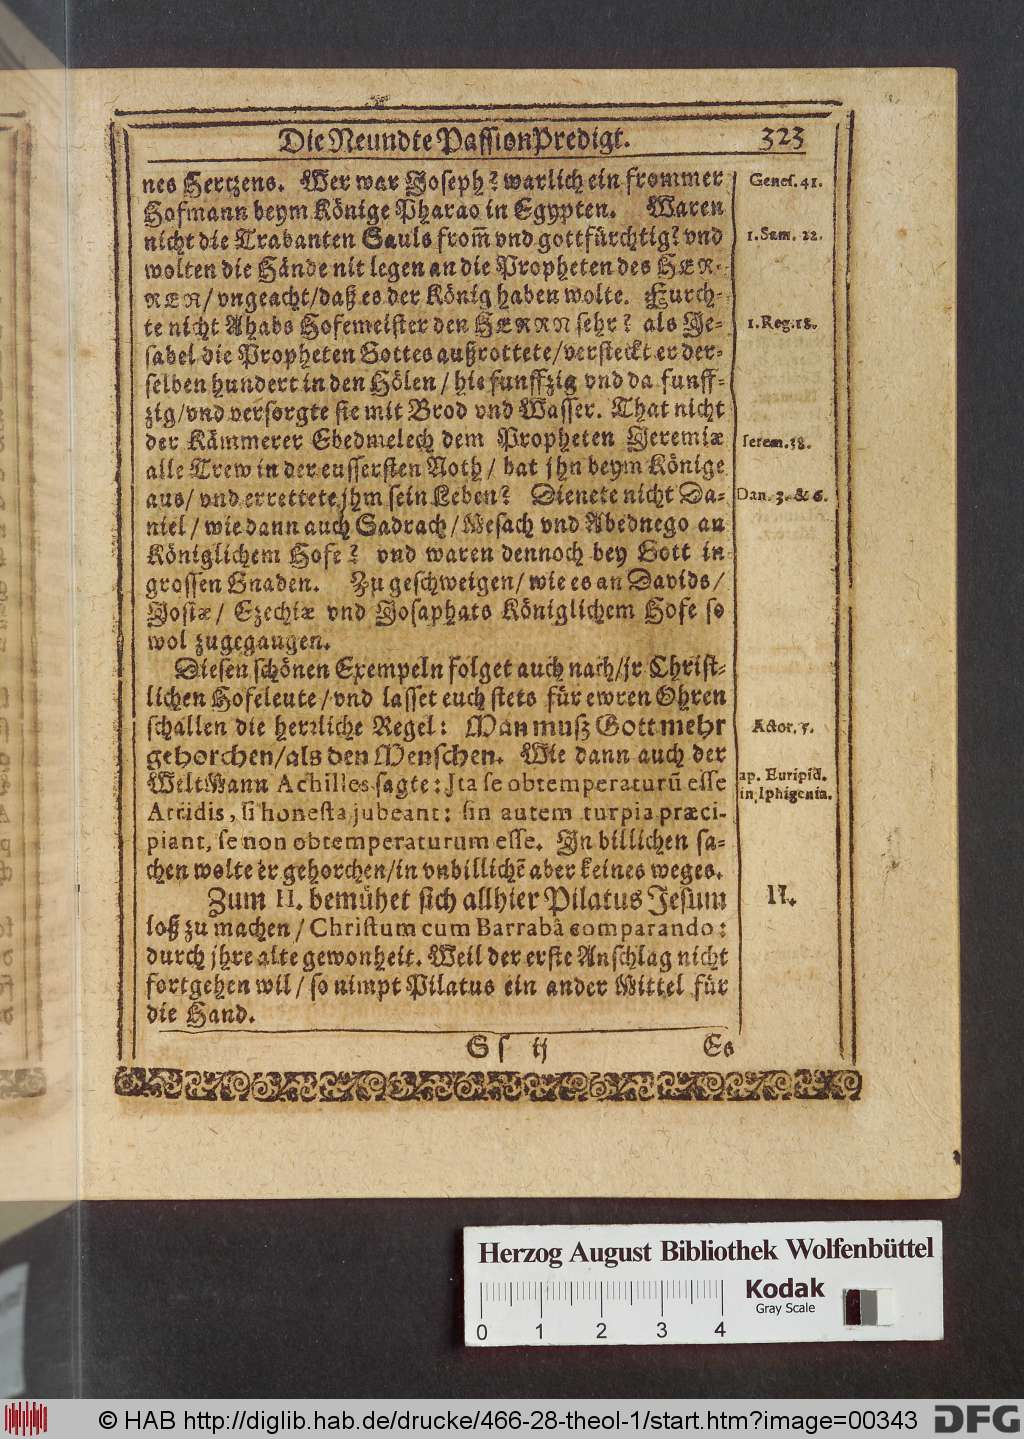 Die Neundte PassionPredigt. 323
nes Hertzens. Wer war Joseph? warlich ein frommer
Hofmann beym Könige Pharao in Egypten. Waren
nicht die Trabanten Sauls from̃ vnd gottfürchtig? vnd
wolten die Hände nit legen an die Propheten des HER-
REN/ vngeacht/ daß es der König haben wolte. Furch-
te nicht Ahabs Hofemeister den HERRN sehr? als Je-
sabel die Propheten Gottes außrottete/ versteckt er der-
selben hundert in den Hölen/ hie funffzig vnd da funff-
zig/ vnd versorgte sie mit Brod vnd Wasser. That nicht
der Kämmerer Ebedmelech dem Propheten Jeremiæ
alle Trew in der eussersten Noth/ bat jhn beym Könige
aus/ vnd errettete jhm sein Leben? Dienete nicht Da-
niel/ wie dann auch Sadrach/ Mesach vnd Abednego an
Königlichem Hofe? vnd waren dennoch bey Gott in
grossen Gnaden. Zu geschweigen/ wie es an Davids/
Josiæ/ Ezechiæ vnd Josaphats Königlichem Hofe so
wol zugegangen.
Diesen schönen Exempeln folget auch nach/ jr Christ-
lichen Hofeleute/ vnd lasset euch stets für ewren Ohren
schallen die herrliche Regel: Man muß Gott mehr
gehorchen/ als den Menschen. Wie dann auch der
WeltMann Achilles sagte: Ita se obtemperaturũ esse
Atridis, si honesta jubeant: sin autem turpia præci-
piant, se non obtemperaturum esse. In billichen sa-
chen wolte er gehorchen/ in vnbillichẽ aber keines weges.
Zum II. bemühet sich allhier Pilatus Jesum
loß zu machen/ Christum cum Barrabâ comparando:
durch jhre alte gewonheit. Weil der erste Anschlag nicht
fortgehen wil/ so nimpt Pilatus ein ander Mittel für
die Hand.
S s ij Es
Genes. 41.
1. Sam. 22.
1. Reg. 18.
Ierem. 38.
Dan. 3. & 6.
Actor. 5.
ap. Euripid.
in Iphigenia.
II.
Herzog August Bibliothek Wolfenbüttel
Kodak
Gray Scale
0 1 2 3 4
© HAB http://diglib.hab.de/drucke/466-28-theol-1/start.htm?image=00343
DFG